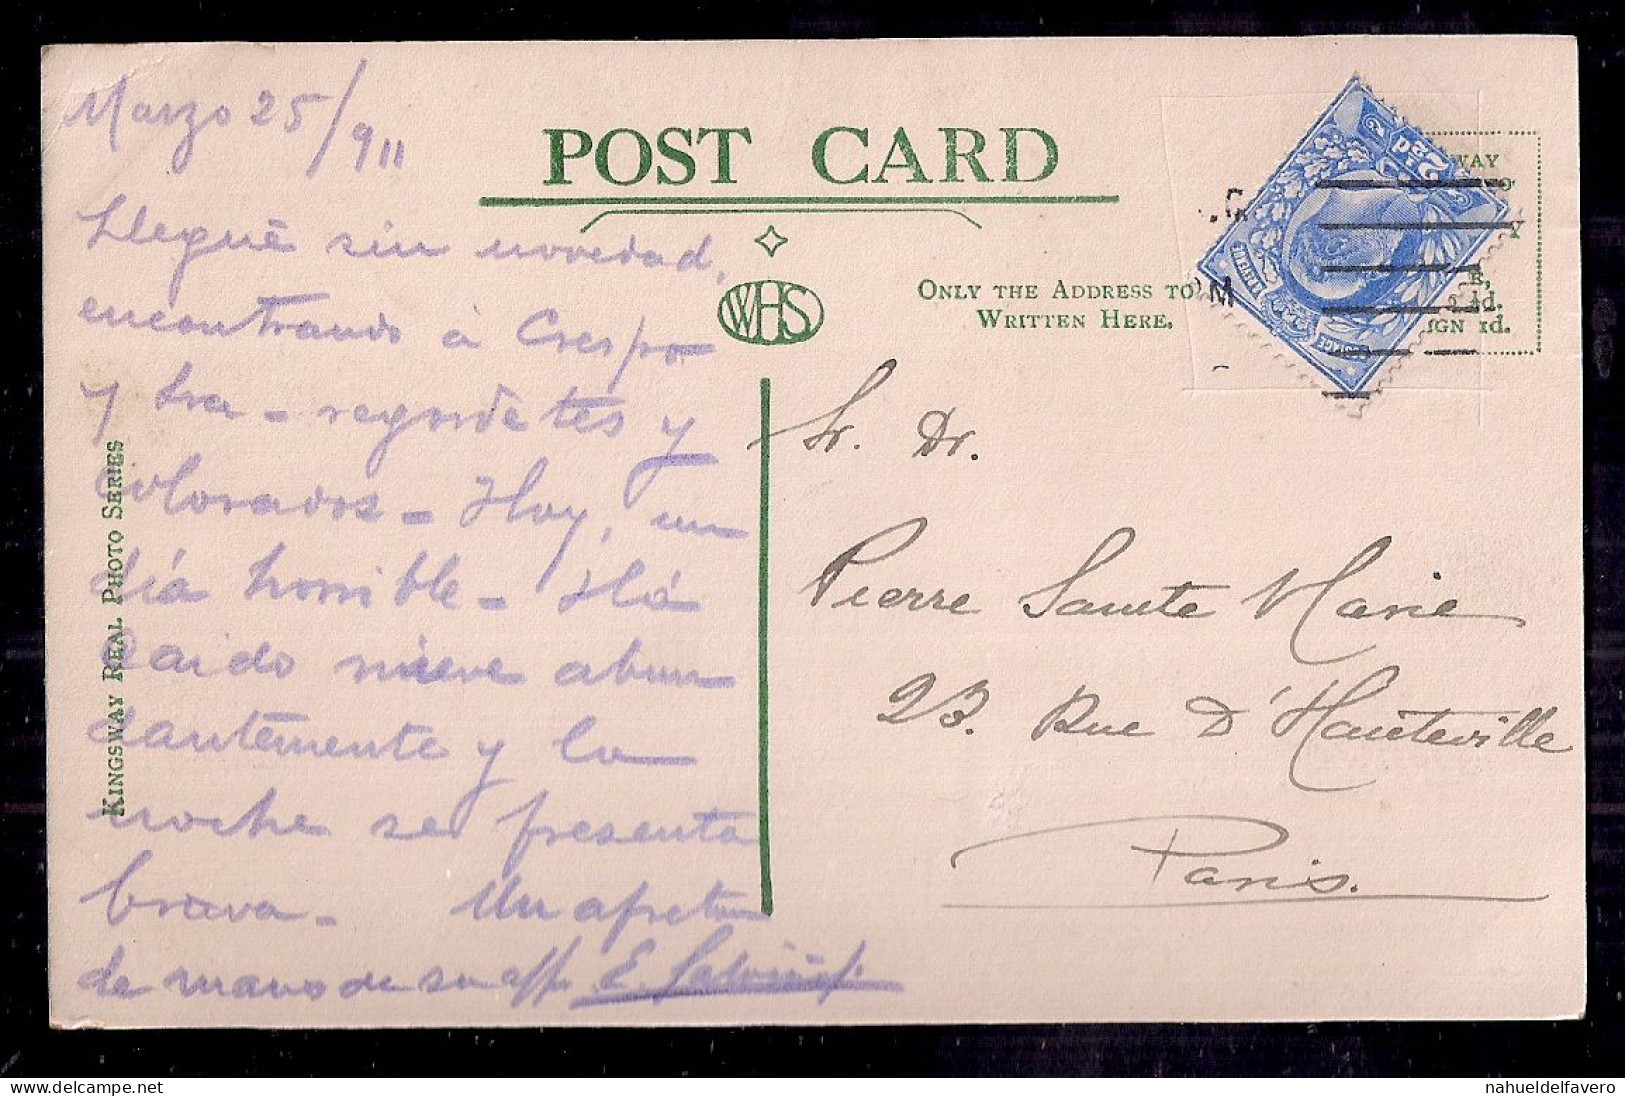 Marzo 25/911
POST CARD
Llegué sin novedad,
encontrando á Crespo
y Sra - regordetes y
Colorados - Hoy, un
día horrible - Há
Caido nieve abun
dantemente y la
noche se presenta
brava - Un apreton
de mano de su aff. E.
KINGSWAY REAL PHOTO SERIES
WHS
ONLY THE ADDRESS TO
WRITTEN HERE.
WAY
E,
½d.
IGN 1d.
POSTAGE
2½D
M
Sr. Dr.
Pierre Sainte Marie
23. Rue D'Hauteville
Paris.
nahueldelfavero